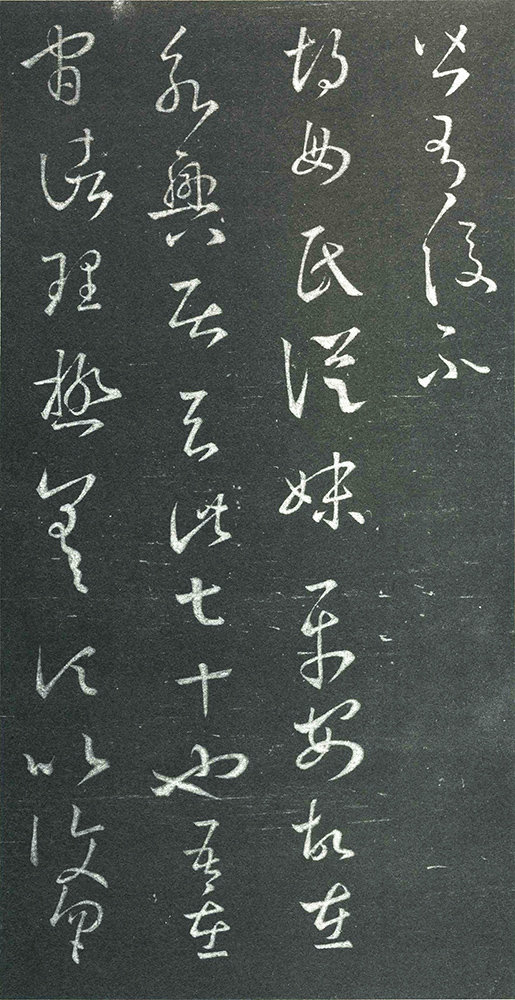 皆有後不
胡母氏從妹平安故在
永興居去此七十也吾在
官諸理極差頃比復勿勿